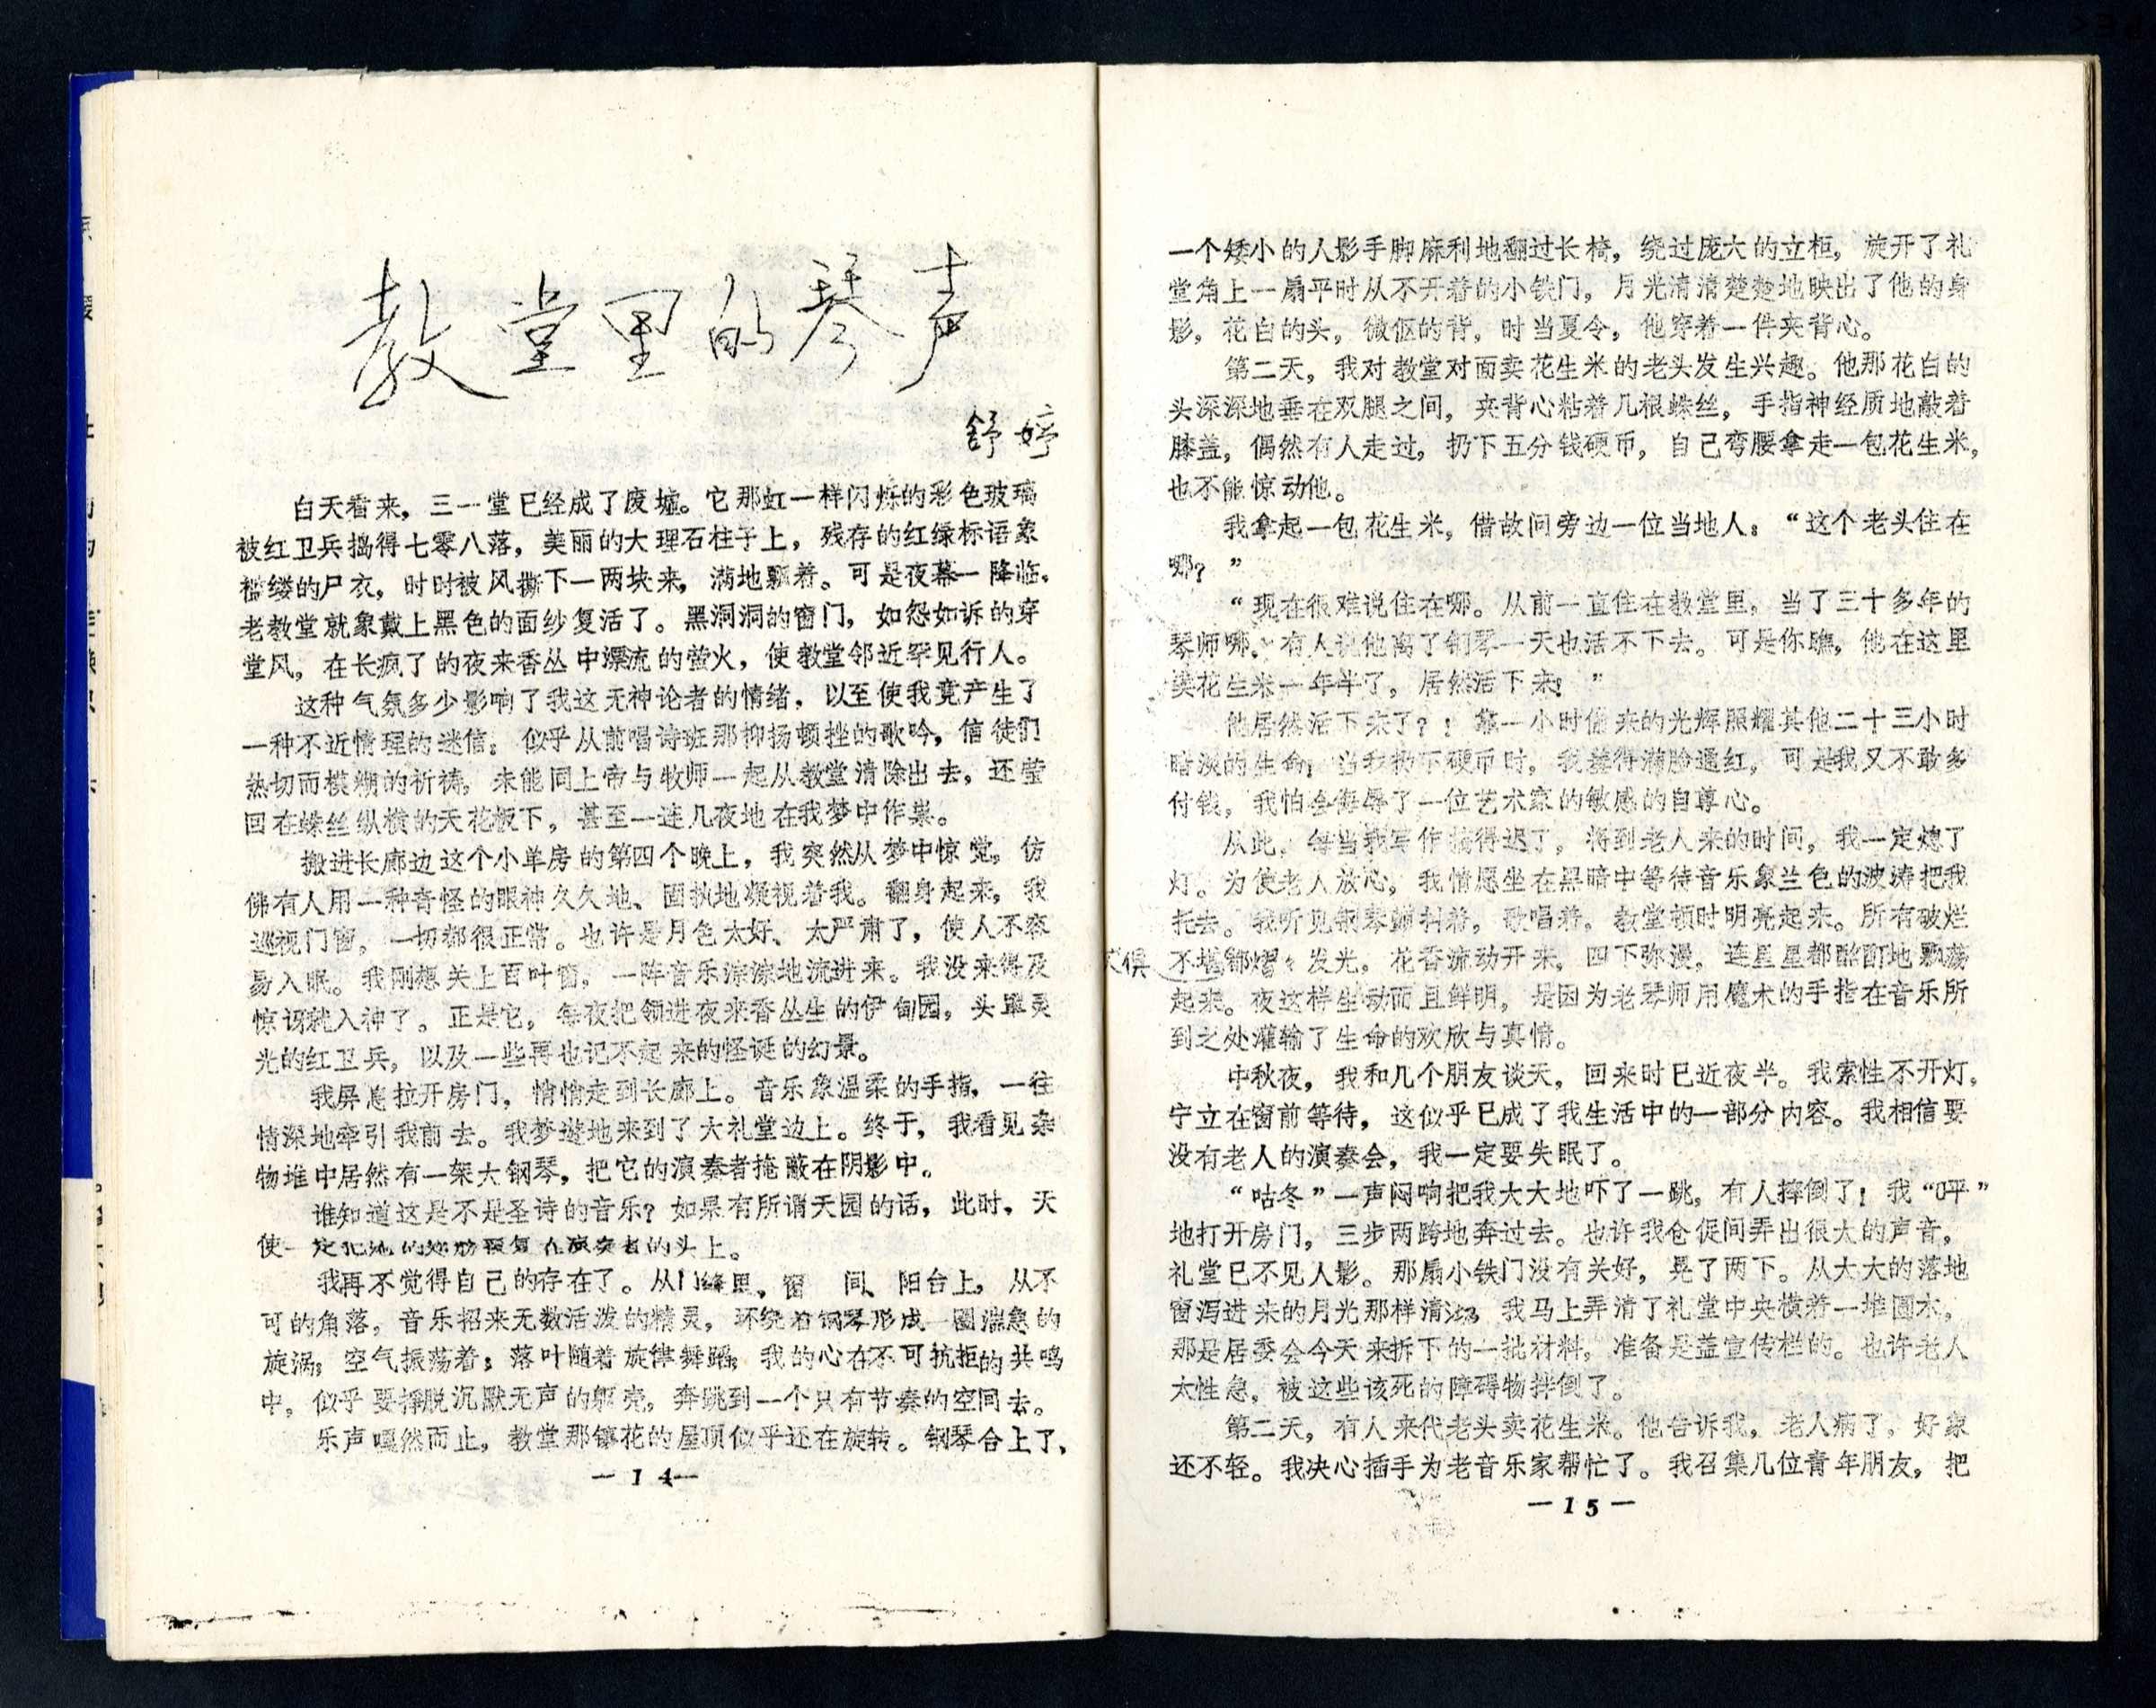 教堂里的琴声
舒婷
白天看来，三一堂已经成了废墟。它那虹一样闪烁的彩色玻璃
被红卫兵捣得七零八落，美丽的大理石柱子上，残存的红绿标语象
褴缕的尸衣，时时被风撕下一两块来，满地飘着。可是夜幕一降临，
老教堂就象戴上黑色的面纱复活了。黑洞洞的窗门，如怨如诉的穿
堂风，在长疯了的夜来香丛中漂流的萤火，使教堂邻近罕见行人。
这种气氛多少影响了我这无神论者的情绪，以至使我竟产生了
一种不近情理的迷信：似乎从前唱诗班那抑扬顿挫的歌吟，信徒们
热切而模糊的祈祷，未能同上帝与牧师一起从教堂清除出去，还莹
回在蛛丝纵横的天花板下，甚至一连几夜地在我梦中作祟。
搬进长廊边这个小单房的第四个晚上，我突然从梦中惊觉，仿
佛有人用一种奇怪的眼神久久地、固执地凝视着我。翻身起来，我
巡视门窗，一切都很正常。也许是月色太好、太严肃了，使人不容
易入眠。我刚想关上百叶窗，一阵音乐淙淙地流进来。我没来得及
惊讶就入神了。正是它，每夜把领进夜来香丛生的伊甸园，头罩灵
光的红卫兵，以及一些再也记不起来的怪诞的幻景。
我屏息拉开房门，悄悄走到长廊上。音乐象温柔的手指，一往
情深地牵引我前去。我梦游地来到了大礼堂边上。终于，我看见杂
物堆中居然有一架大钢琴，把它的演奏者掩蔽在阴影中。
谁知道这是不是圣诗的音乐？如果有所谓天园的话，此时，天
使一定把她的翅膀覆在演奏者的头上。
我再不觉得自己的存在了。从门缝里，窗 间、阳台上，从不
可的角落，音乐招来无数活泼的精灵，环绕着钢琴形成一圈湍急的
旋涡；空气振荡着；落叶随着旋律舞蹈；我的心在不可抗拒的共鸣
中，似乎要挣脱沉默无声的躯壳，奔跳到一个只有节奏的空间去。
乐声嘎然而止，教堂那镂花的屋顶似乎还在旋转。钢琴合上了，
—14—
一个矮小的人影手脚麻利地翻过长椅，绕过庞大的立柜，旋开了礼
堂角上一扇平时从不开着的小铁门，月光清清楚楚地映出了他的身
影，花白的头，微伛的背，时当夏令，他穿着一件夹背心。
第二天，我对教堂对面卖花生米的老头发生兴趣。他那花白的
头深深地垂在双腿之间，夹背心粘着几根蛛丝，手指神经质地敲着
膝盖，偶然有人走过，扔下五分钱硬币，自己弯腰拿走一包花生米，
也不能惊动他。
我拿起一包花生米，借故问旁边一位当地人：“这个老头住在
哪？”
“现在很难说住在哪。从前一直住在教堂里，当了三十多年的
琴师哪。有人说他离了钢琴一天也活不下去。可是你瞧，他在这里
卖花生米一年半了，居然活下来！”
他居然活下来了？！靠一小时偷来的光辉照耀其他二十三小时
暗淡的生命，当我扔下硬币时，我羞得满脸通红，可是我又不敢多
付钱，我怕会侮辱了一位艺术家的敏感的自尊心。
从此，每当我写作搞得迟了，将到老人来的时间，我一定熄了
灯。为使老人放心，我情愿坐在黑暗中等待音乐象兰色的波涛把我
托去。我听见钢琴颤抖着，歌唱着，教堂顿时明亮起来。所有破烂
不堪都熠熠发光，花香流动开来，四下弥漫，连星星都酩酊地飘荡
起来。夜这样生动而且鲜明，是因为老琴师用魔术的手指在音乐所
到之处灌输了生命的欢欣与真情。
中秋夜，我和几个朋友谈天，回来时已近夜半。我索性不开灯，
宁立在窗前等待，这似乎已成了我生活中的一部分内容。我相信要
没有老人的演奏会，我一定要失眠了。
“咕冬”一声闷响把我大大地吓了一跳，有人摔倒了！我“呯”
地打开房门，三步两跨地奔过去。也许我仓促间弄出很大的声音，
礼堂已不见人影。那扇小铁门没有关好，晃了两下。从大大的落地
窗泻进来的月光那样清，我马上弄清了礼堂中央横着一堆圆木，
那是居委会今天来拆下的一批材料，准备是盖宣传栏的。也许老人
太性急，被这些该死的障碍物拌倒了。
第二天，有人来代老头卖花生米。他告诉我，老人病了，好象
还不轻。我决心插手为老音乐家帮忙了。我召集几位青年朋友，把
—15—